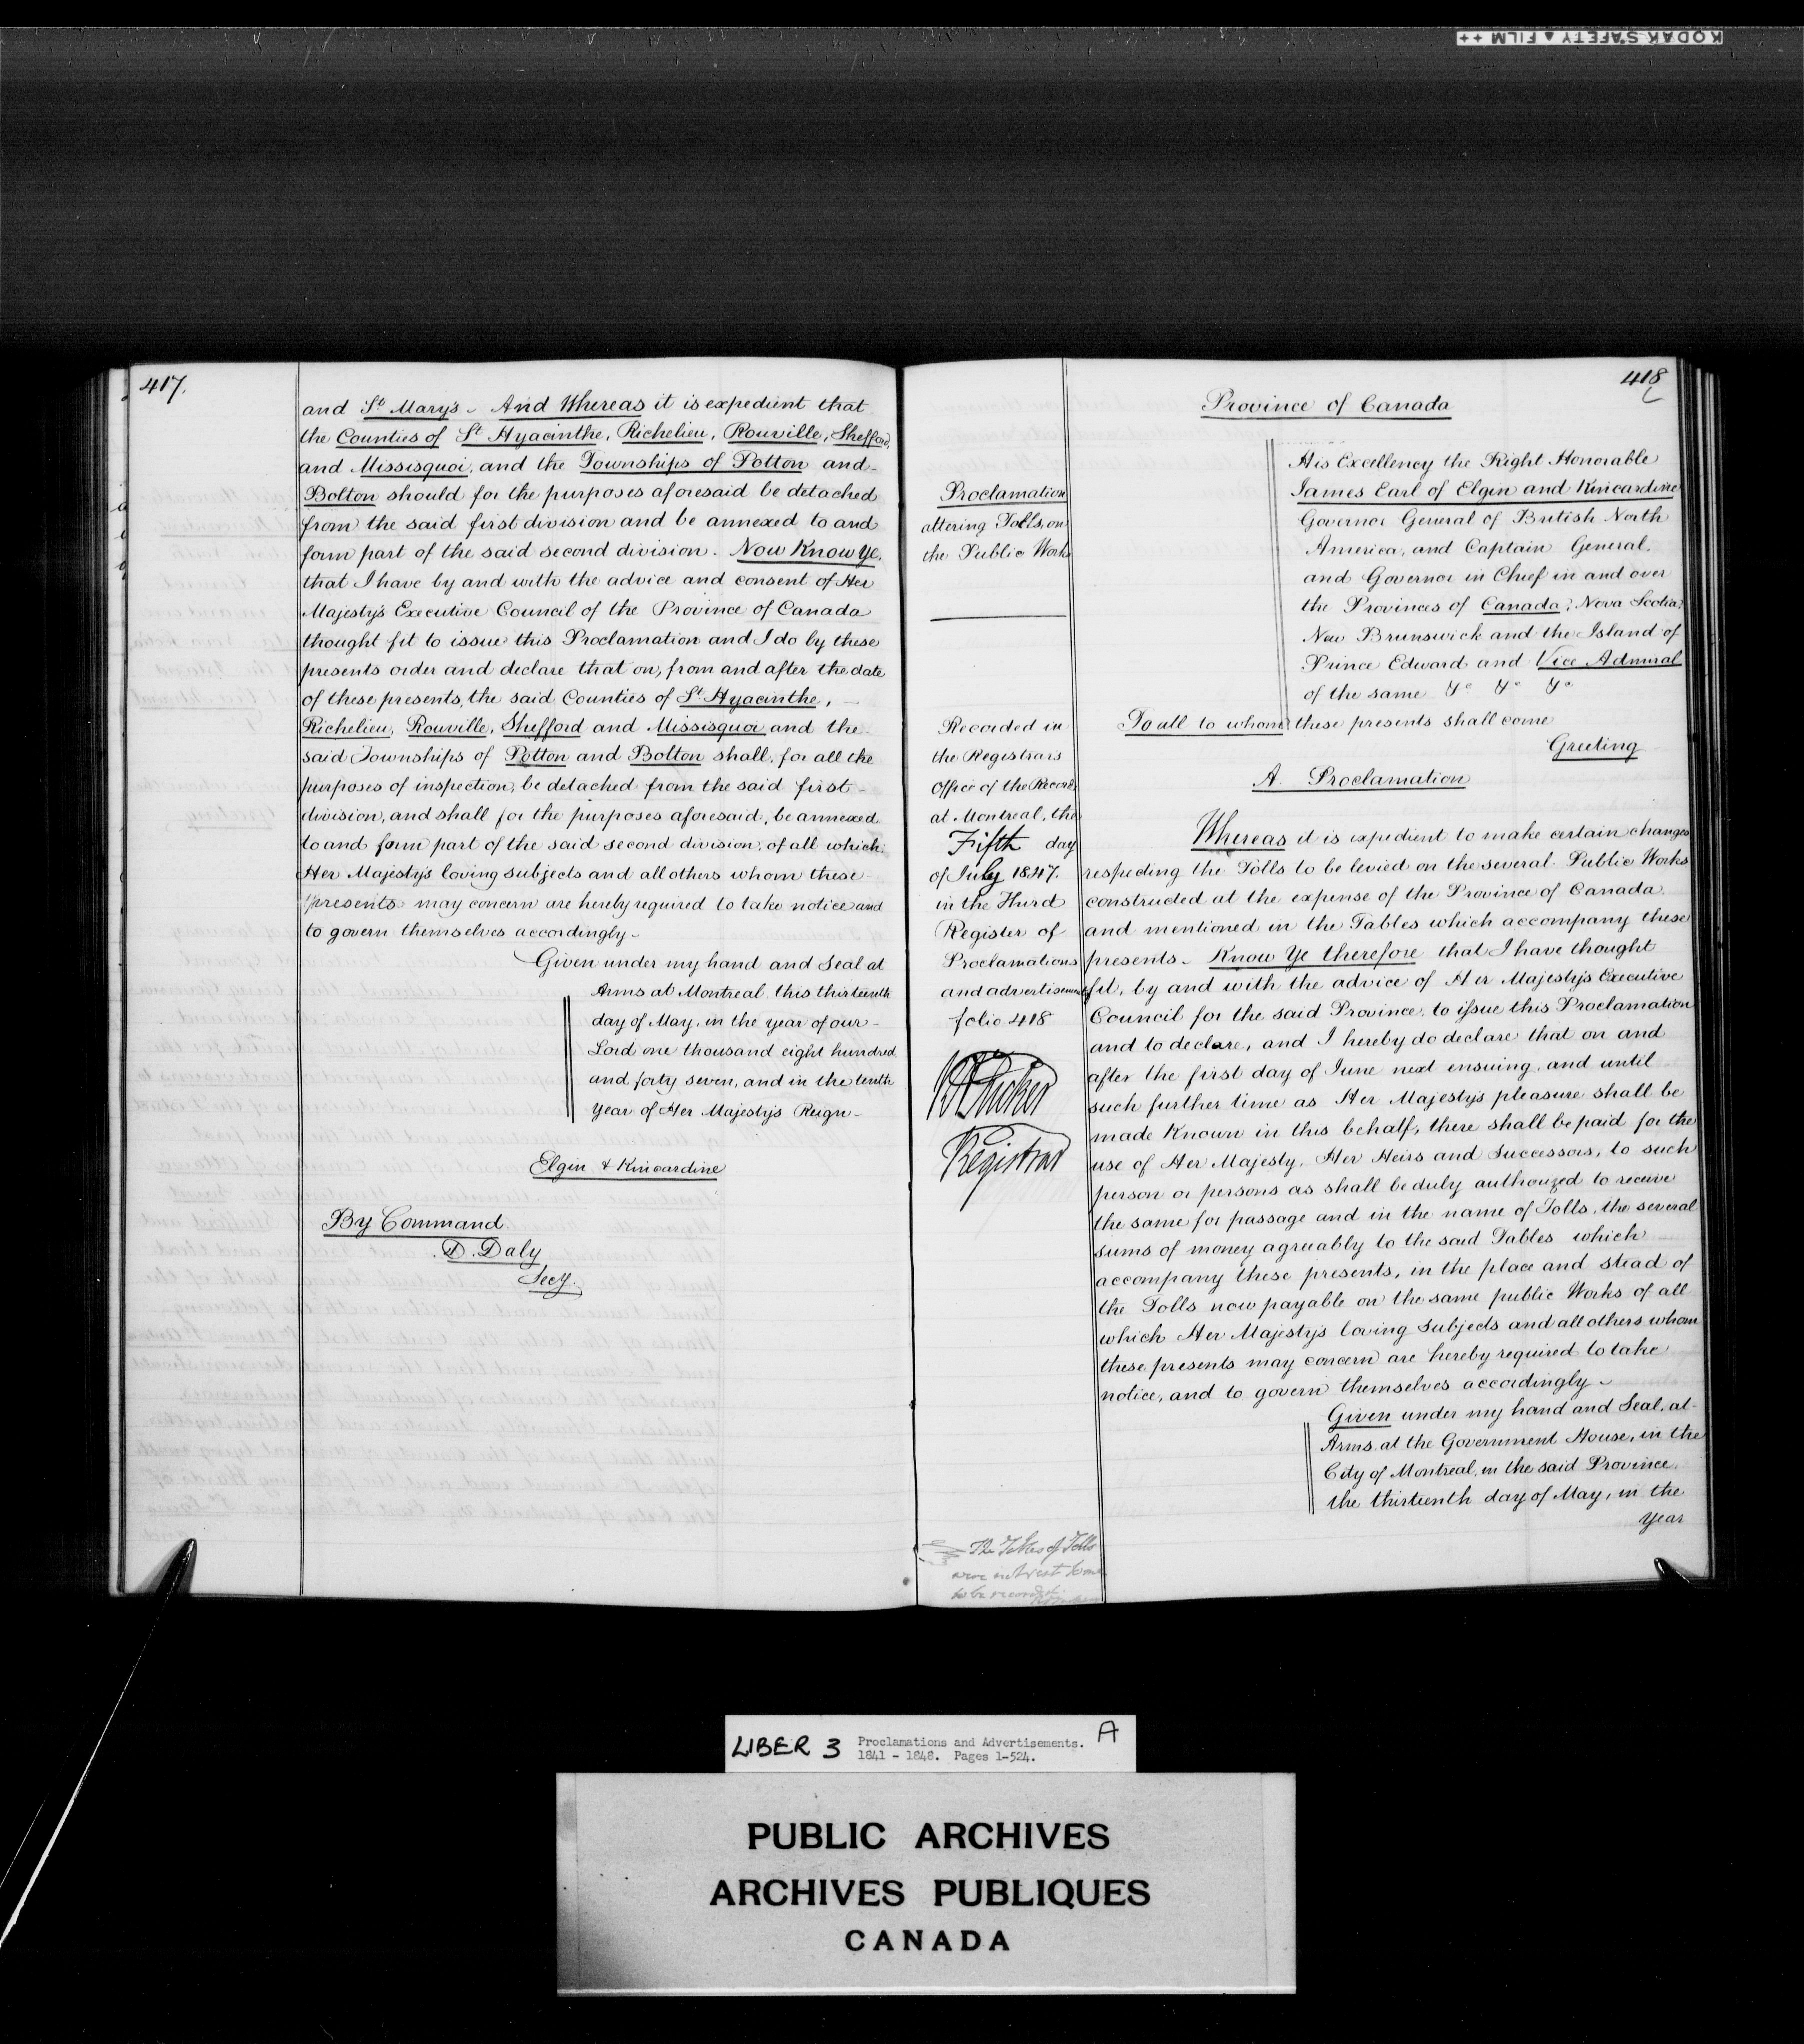 KODAK SAFETY ▲ FILM ++
417.
and St Mary's. And Whereas it is expedient that
the Counties of St Hyacinthe, Richelieu, Rouville, Shefford,
and Missisquoi, and the Townships of Potton and
Bolton should for the purposes aforesaid be detached
from the said first division and be annexed to and
form part of the said second division. Now Know Ye,
that I have by and with the advice and consent of Her
Majesty's Executive Council of the Province of Canada
thought fit to issue this Proclamation and I do by these
presents order and declare that on, from and after the date
of these presents, the said Counties of St Hyacinthe,
Richelieu, Rouville, Shefford and Missisquoi and the
said Townships of Potton and Bolton shall, for all the
purposes of inspection, be detached from the said first
division, and shall for the purposes aforesaid, be annexed
to and form part of the said second division, of all which
Her Majesty's loving subjects and all others whom these
presents may concern are hereby required to take notice and
to govern themselves accordingly.
Given under my hand and Seal at
Arms at Montreal this thirteenth
day of May, in the year of our
Lord one thousand eight hundred
and forty seven, and in the tenth
year of Her Majesty's Reign.
Elgin & Kincardine
By Command
D. Daly
Secy.
418
Proclamation
altering Tolls, on
the Public Works
Recorded in
the Registrar's
Office of the Records
at Montreal, the
Fifth day
of July 1847.
in the Third
Register of
Proclamations
and advertisements
folio 418
Registrar
Province of Canada
His Excellency the Right Honorable
James Earl of Elgin and Kincardine
Governor General of British North
America, and Captain General
and Governor in Chief in and over
the Provinces of Canada, Nova Scotia,
New Brunswick and the Island of
Prince Edward and Vice Admiral
of the same &c &c &c
To all to whom these presents shall come
Greeting
A Proclamation
Whereas it is expedient to make certain changes
respecting the Tolls to be levied on the several Public Works
constructed at the expense of the Province of Canada
and mentioned in the Tables which accompany these
presents. Know Ye therefore that I have thought
fit, by and with the advice of Her Majesty's Executive
Council for the said Province, to issue this Proclamation
and to declare, and I hereby do declare that on and
after the first day of June next ensuing, and until
such further time as Her Majesty's pleasure shall be
made Known in this behalf, there shall be paid for the
use of Her Majesty, Her Heirs and Successors, to such
person or persons as shall be duly authorized to receive
the same for passage and in the name of Tolls, the several
sums of money agreeably to the said Tables which
accompany these presents, in the place and stead of
the Tolls now payable on the same public Works of all
which Her Majesty's loving Subjects and all others whom
these presents may concern are hereby required to take
notice, and to govern themselves accordingly.
Given under my hand and Seal, at
Arms at the Government House, in the
City of Montreal, in the said Province
the thirteenth day of May, in the
year
The Tables of Tolls
were not sent to me
to be recorded.
LIBER 3 Proclamations and Advertisements. A
1841 - 1848. Pages 1-524.
PUBLIC ARCHIVES
ARCHIVES PUBLIQUES
CANADA